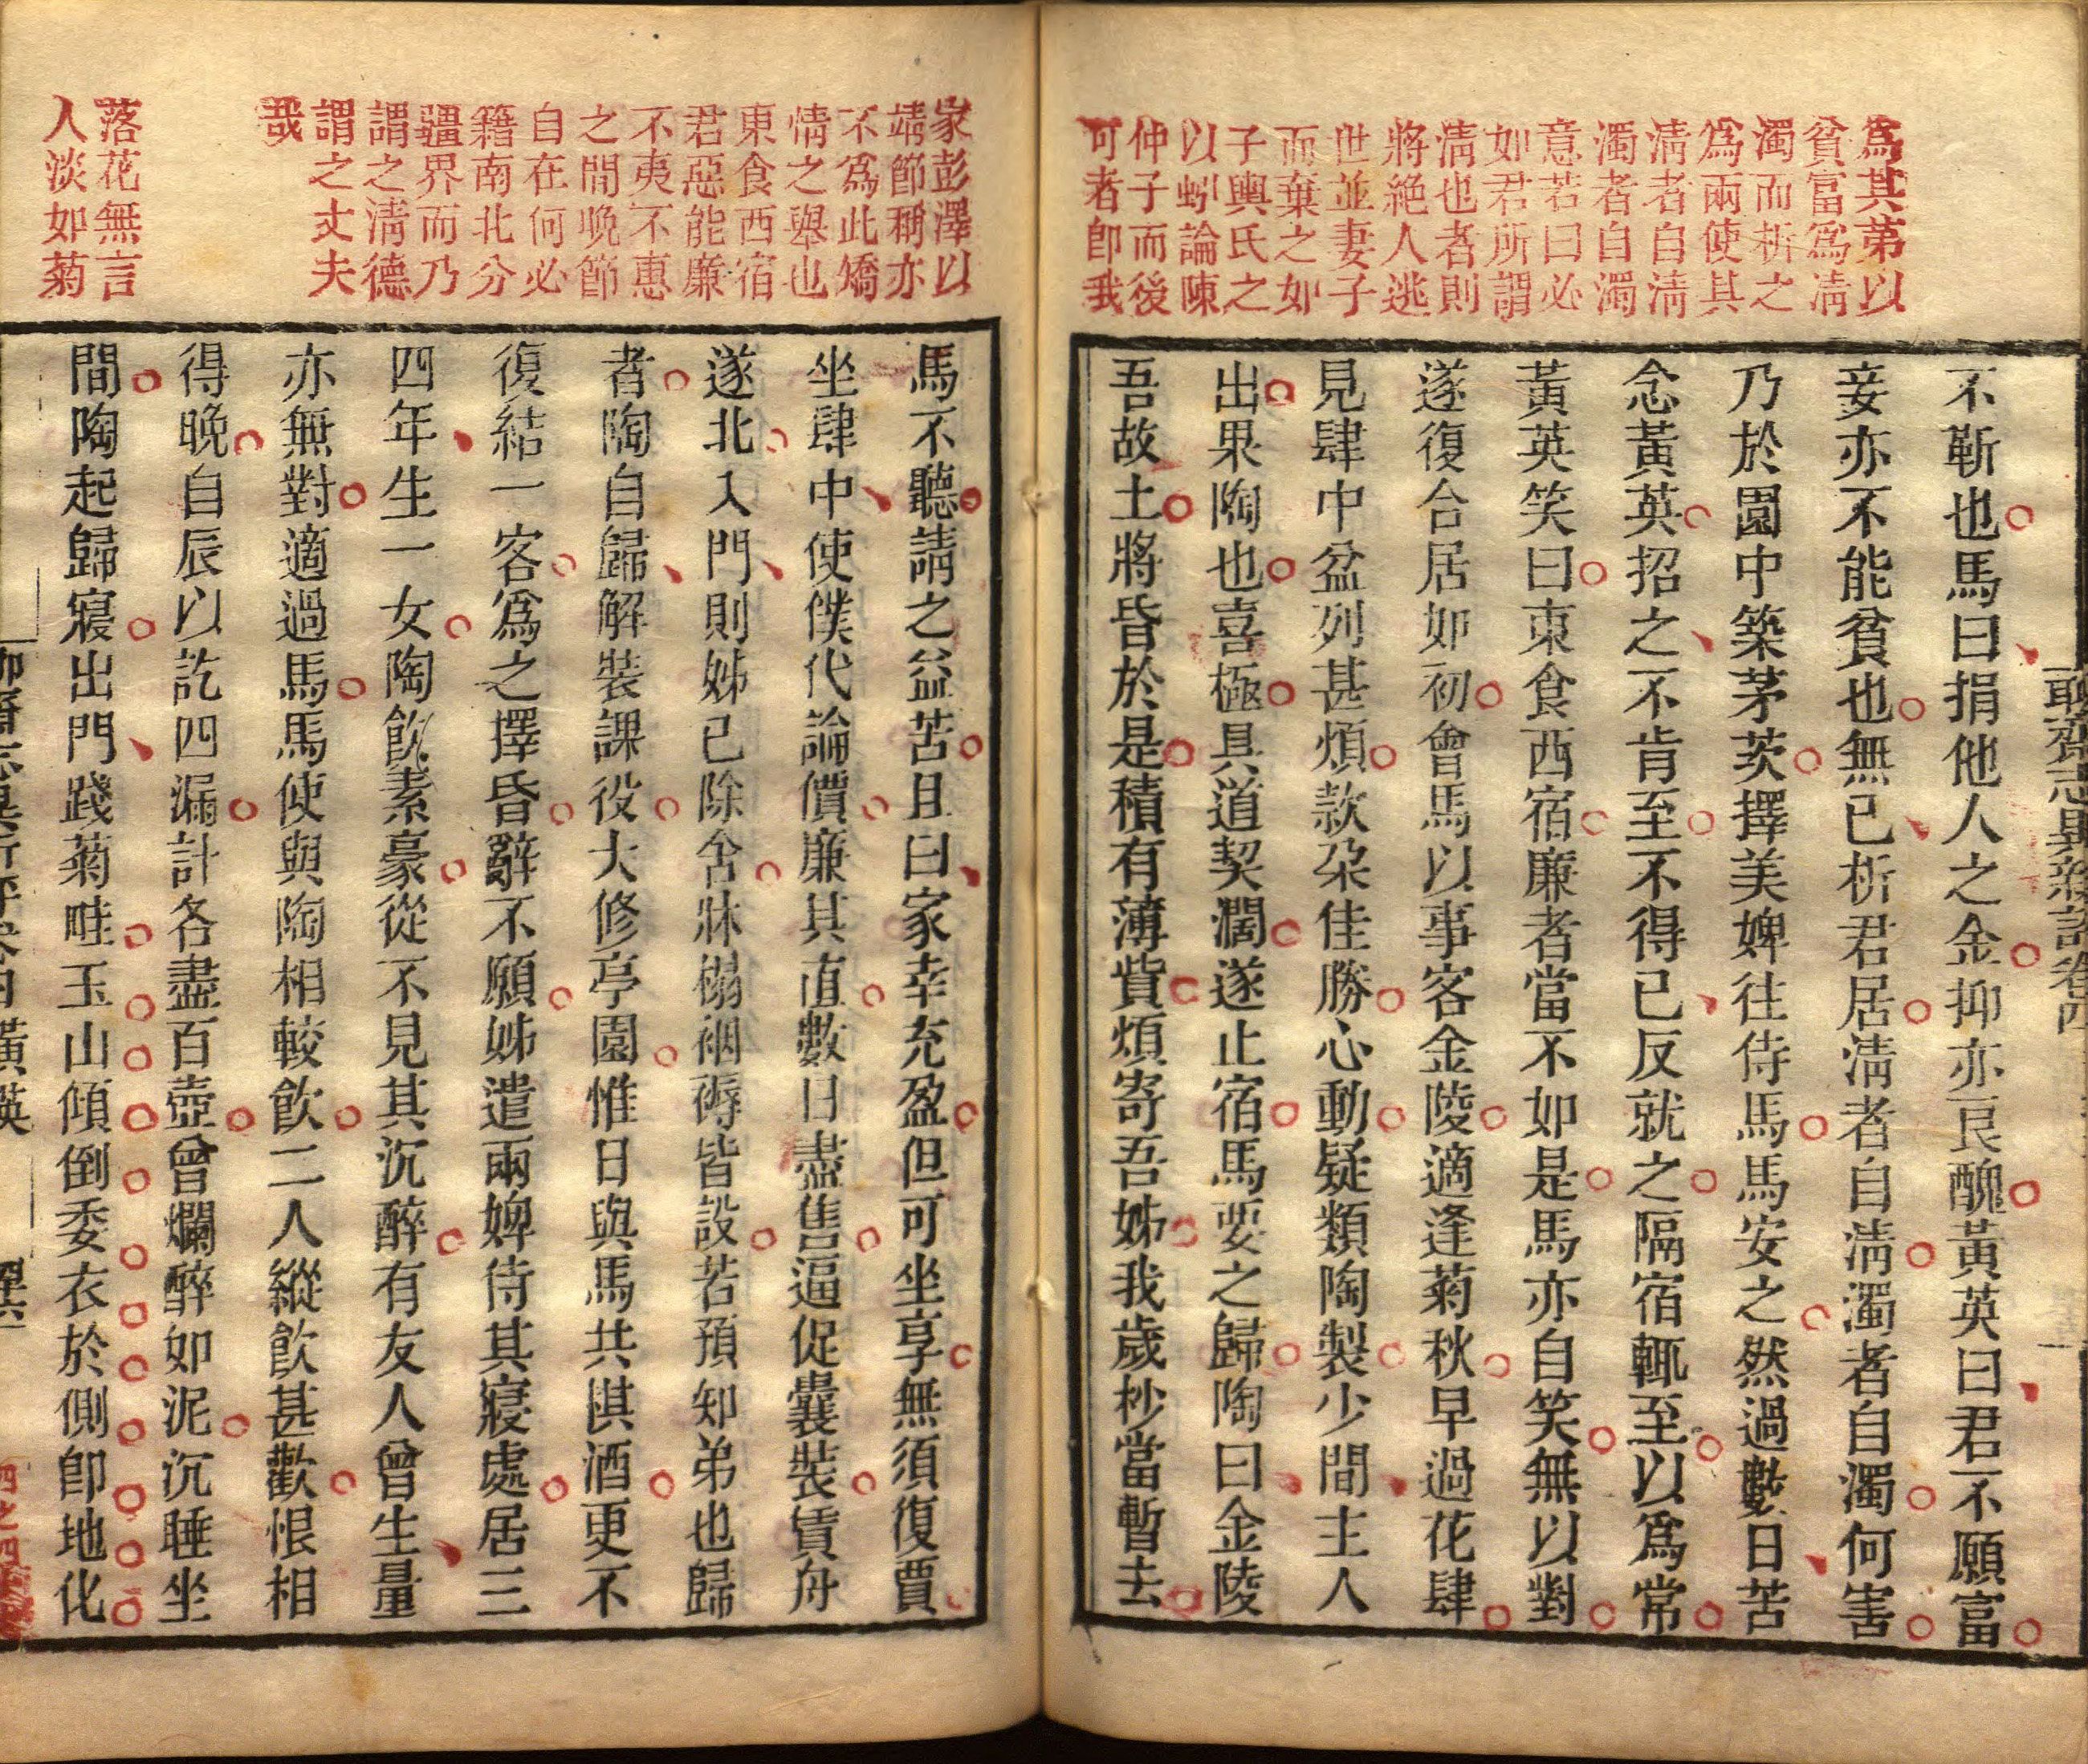 爲其弟以
貧富爲清
濁而析之
爲兩使其
清者自清
濁者自濁
意若曰必
如君所謂
清也者則
將絕人逃
世並妻子
而棄之如
子輿氏之
以蚓論陳
仲子而後
可者卽我
不靳也馬曰捐他人之金抑亦良醜黃英曰君不願富
妾亦不能貧也無已析君居清者自清濁者自濁何害
乃於園中築茅茨擇美婢往侍馬馬安之然過數日苦
念黃英招之不肯至不得已反就之隔宿輒至以爲常
黃英笑曰東食西宿廉者當不如是馬亦自笑無以對
遂復合居如初會馬以事客金陵適逢菊秋早過花肆
見肆中盆列甚煩款朵佳勝心動疑類陶製少間主人
出果陶也喜極具道契濶遂止宿馬要之歸陶曰金陵
吾故土將昏於是積有薄貲煩寄吾姊我歲杪當暫去
家彭澤以
靖節稱亦
不爲此矯
情之舉也
東食西宿
君惡能廉
不夷不惠
之間晚節
自在何必
籬南北分
疆界而乃
謂之清德
謂之丈夫
哉
落花無言
人淡如菊
馬不聽請之益苦且曰家幸充盈但可坐享無須復賈
坐肆中使僕代論價廉其直數日盡售逼促囊裝賃舟
遂北入門則姊已除舍牀榻裀褥皆設若預知弟也歸
者陶自歸解裝課役大修亭園惟日與馬共棋酒更不
復結一客爲之擇昏辭不願姊遣兩婢侍其寢處居三
四年生一女陶飲素豪從不見其沉醉有友人曾生量
亦無對適過馬馬使與陶相較飲二人縱飲甚歡恨相
得晚自辰以訖四漏計各盡百壺曾爛醉如泥沉睡坐
間陶起歸寢出門踐菊畦玉山傾倒委衣於側卽地化